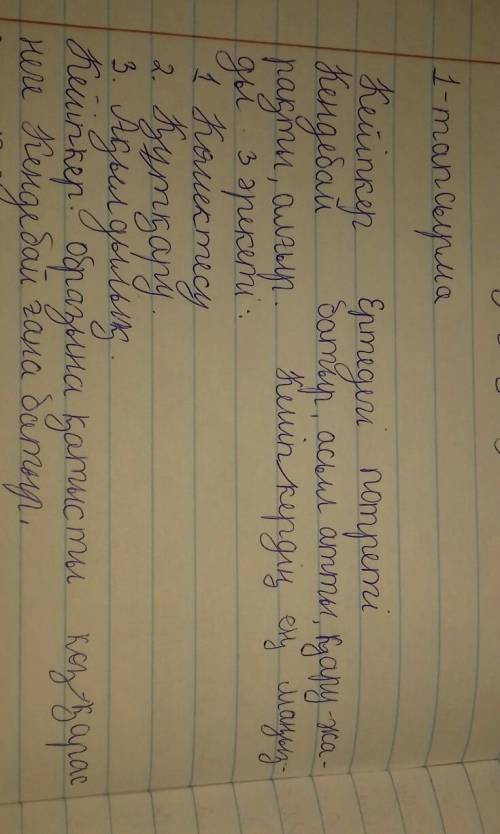 1-тапсырма
Кейіпкер Ертедегі потреті
Кендебай батыр, асыл атты, қару-жа-
рақты, алғыр. Кейіпкердің ең маңыз-
ды 3 әрекеті:
1 Көмектесу
2. Құтқару.
3. Ақылдылық.
Кейіпкер образына қатысты көз-қарас
неге Кендебай ғана батыр.